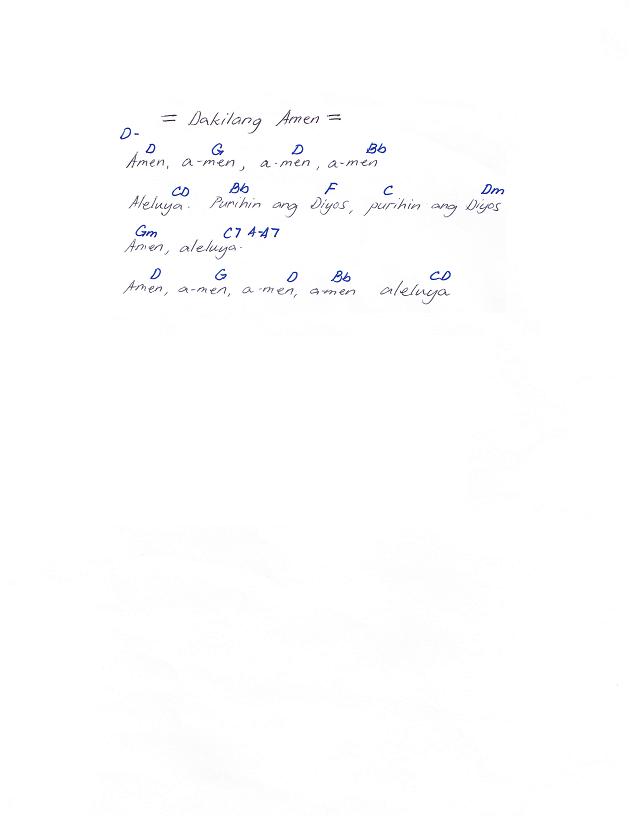 = Dakilang Amen =
D-
D G D Bb
Amen, a-men, a-men, a-men
CD Bb F C Dm
Aleluya. Purihin ang Diyos, purihin ang Diyos
Gm C7 A-A7
Amen, aleluya.
D G D Bb CD
Amen, a-men, a-men, a-men aleluya